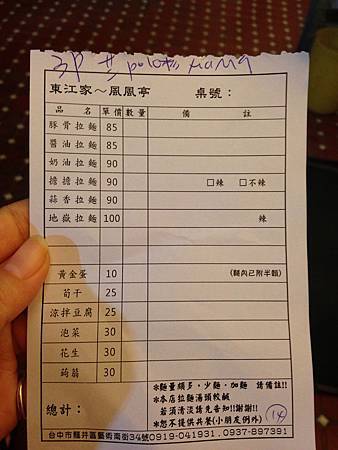 polo xiang
東江家～風風亭　桌號：
品名 單價 數量 備註
豚骨拉麵 85
醬油拉麵 85
奶油拉麵 90
擔擔拉麵 90 □辣 □不辣
蒜香拉麵 90
地獄拉麵 100 辣
黃金蛋 10 (麵內已附半顆)
筍干 25
涼拌豆腐 25
泡菜 30
花生 30
蒟蒻 30
總計：
*麵量頗多，少麵、加麵 請備註!!
*本店拉麵湯頭較鹹
若須清淡請先告知!!謝謝!!
*恕不提供共餐(小朋友例外)
14
台中市龍井區藝術南街34號0919-041931.0937-897391